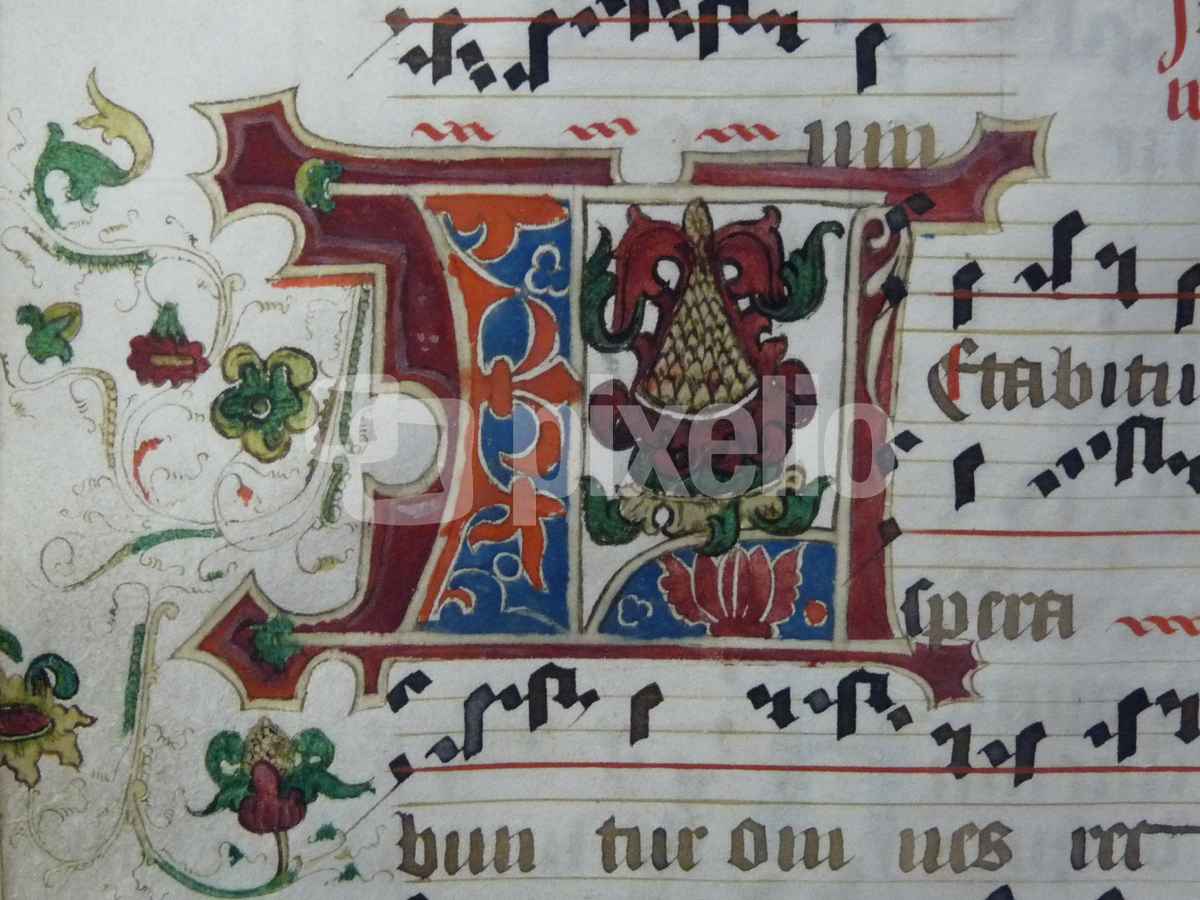 um
Etabitu
spera
bun tur om nes rec
pixelio